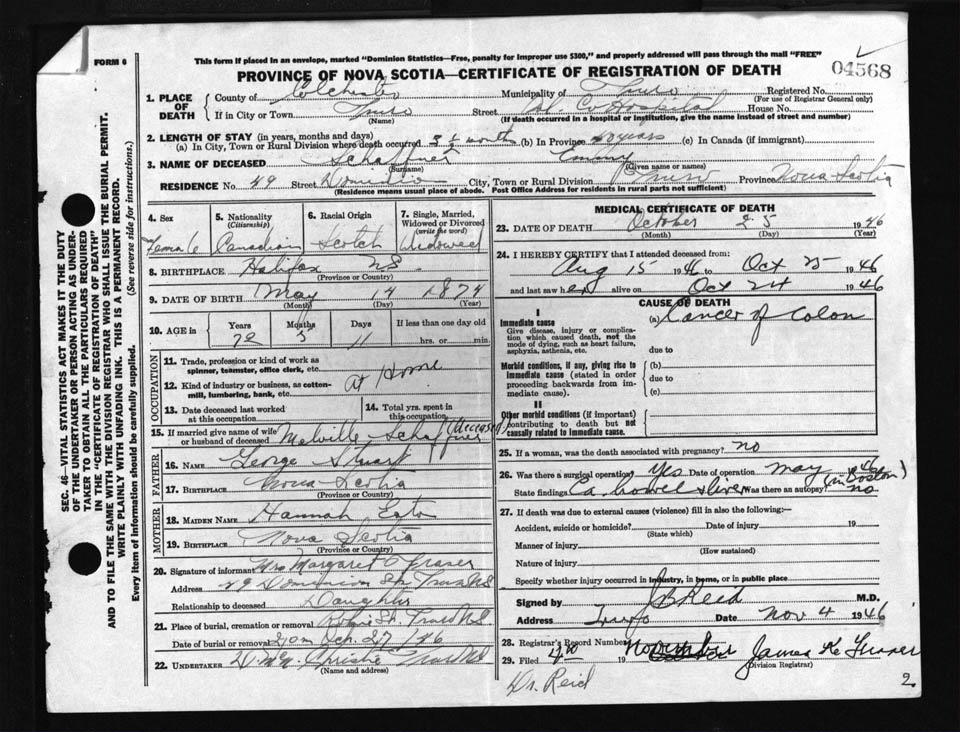 FORM 6
This form if placed in an envelope, marked "Dominion Statistics—Free, penalty for improper use $300," and properly addressed will pass through the mail "FREE"
04568
PROVINCE OF NOVA SCOTIA—CERTIFICATE OF REGISTRATION OF DEATH
1. PLACE OF DEATH
County of Colchester Municipality of Truro Registered No.
(For use of Registrar General only)
If in City or Town Truro Street Col. Co Hospital House No.
(Name) (If death occurred in a hospital or institution, give the name instead of street and number)
2. LENGTH OF STAY (in years, months and days)
(a) In City, Town or Rural Division where death occurred 5 ½ month (b) In Province 20 years (c) In Canada (if immigrant)
3. NAME OF DECEASED Schaffner Emmy
(Surname) (Given name or names)
RESIDENCE No. 49 Street Dominion City, Town or Rural Division Truro Province Nova Scotia
(Residence means usual place of abode. Post Office Address for residents in rural parts not sufficient)
4. Sex Female
5. Nationality (Citizenship) Canadian
6. Racial Origin Scotch
7. Single, Married, Widowed or Divorced (write the word) Widowed
8. BIRTHPLACE Halifax NS.
(Province or Country)
9. DATE OF BIRTH May 14 1874
(Month) (Day) (Year)
10. AGE in Years Months Days If less than one day old
72 5 11 hrs. or min.
OCCUPATION
11. Trade, profession or kind of work as spinner, teamster, office clerk, etc.
12. Kind of industry or business, as cotton-mill, lumbering, bank, etc.
At Home
13. Date deceased last worked at this occupation
14. Total yrs. spent in this occupation
15. If married give name of wife or husband of deceased Melville Schaffner (deceased)
FATHER
16. NAME George Stuart
17. BIRTHPLACE Nova Scotia
(Province or Country)
MOTHER
18. MAIDEN NAME Hannah Eaton
19. BIRTHPLACE Nova Scotia
(Province or Country)
20. Signature of informant Mrs Margaret O Fraser
Address 49 Dominion St. Truro NS
Relationship to deceased Daughter
21. Place of burial, cremation or removal Robie St. Truro N.S.
Date of burial or removal Oct. 27/46
22. UNDERTAKER Christie Truro NS
(Name and address)
MEDICAL CERTIFICATE OF DEATH
23. DATE OF DEATH October 25 1946
(Month) (Day) (Year)
24. I HEREBY CERTIFY that I attended deceased from:
Aug 15 1946 to Oct 25 1946
and last saw her alive on Oct 24 1946
CAUSE OF DEATH
I
Immediate cause (a) Cancer of Colon
Give disease, injury or complication which caused death, not the mode of dying, such as heart failure, asphyxia, asthenia, etc.
due to
Morbid conditions, if any, giving rise to immediate cause (stated in order proceeding backwards from immediate cause).
(b)
due to
(c)
II
Other morbid conditions (if important) contributing to death but not causally related to immediate cause.
25. If a woman, was the death associated with pregnancy? no
26. Was there a surgical operation? Yes Date of operation May 1946
(in Boston)
State findings Ca bowel & liver Was there an autopsy? no
27. If death was due to external causes (violence) fill in also the following:—
Accident, suicide or homicide? Date of injury 19
(State which)
Manner of injury
(How sustained)
Nature of injury
Specify whether injury occurred in industry, in home, or in public place
Signed by J B Reid M.D.
Address Truro Date Nov 4 1946
28. Registrar's Record Number
29. Filed 19 November James K Fraser
(Division Registrar)
Dr. Reid
2
SEC. 46—VITAL STATISTICS ACT MAKES IT THE DUTY
OF THE UNDERTAKER OR PERSON ACTING AS UNDERTAKER TO OBTAIN ALL THE PARTICULARS REQUIRED
IN THE "CERTIFICATE OF REGISTRATION OF DEATH"
AND TO FILE THE SAME WITH THE DIVISION REGISTRAR WHO SHALL ISSUE THE BURIAL PERMIT.
WRITE PLAINLY WITH UNFADING INK. THIS IS A PERMANENT RECORD.
Every item of information should be carefully supplied. (See reverse side for instructions.)